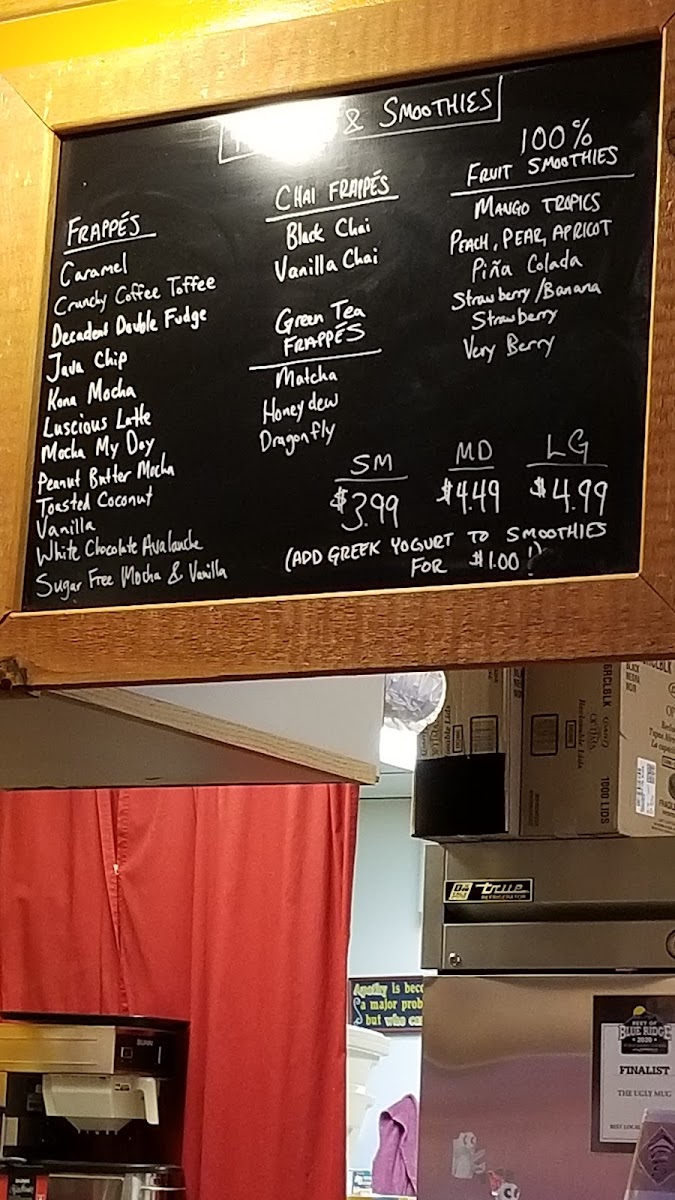 & SMOOTHIES
FRAPPÉS
Caramel
Crunchy Coffee Toffee
Decadent Double Fudge
Java Chip
Kona Mocha
Luscious Latte
Mocha My Day
Peanut Butter Mocha
Toasted Coconut
Vanilla
White Chocolate Avalanche
Sugar Free Mocha & Vanilla
CHAI FRAPPÉS
Black Chai
Vanilla Chai
Green Tea
FRAPPÉS
Matcha
Honeydew
Dragonfly
100%
FRUIT SMOOTHIES
MANGO TROPICS
PEACH, PEAR, APRICOT
Piña Colada
Strawberry/Banana
Strawberry
Very Berry
SM MD LG
$3.99 $4.49 $4.99
(ADD GREEK YOGURT TO SMOOTHIES
FOR $1.00!)
1000 LIDS
true
REFRIGERATOR
Apathy is beco
a major prob
but who ca
BUNN
BEST OF
BLUE RIDGE
2020
FINALIST
THE UGLY MUG
BEST LOCAL